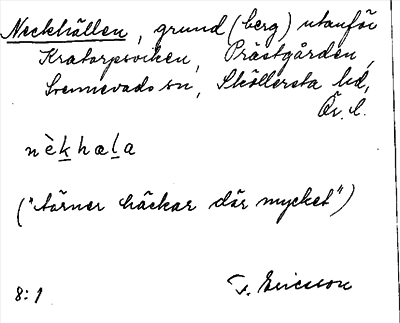 Neckhällen, grund (berg) utanför
Kratorpsviken, Prästgården,
Svennevads sn, Sköllersta hd,
Ör. l.
nèkhæla
("tärnor häckar där mycket")
8:1 F. Ericsson